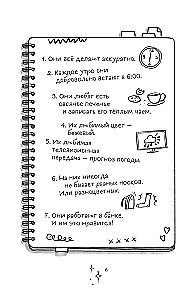 1. Они всё делают аккуратно.
2. Каждое утро они
добровольно встают в 6:00.
3. Они любят есть
овсяное печенье
и запивать его тёплым чаем.
4. Их любимый цвет –
бежевый.
5. Их любимая
телевизионная
передача – прогноз погоды.
6. На них никогда
не бывает рваных носков.
Или разноцветных.
7. Они работают в банке.
И им это нравится!